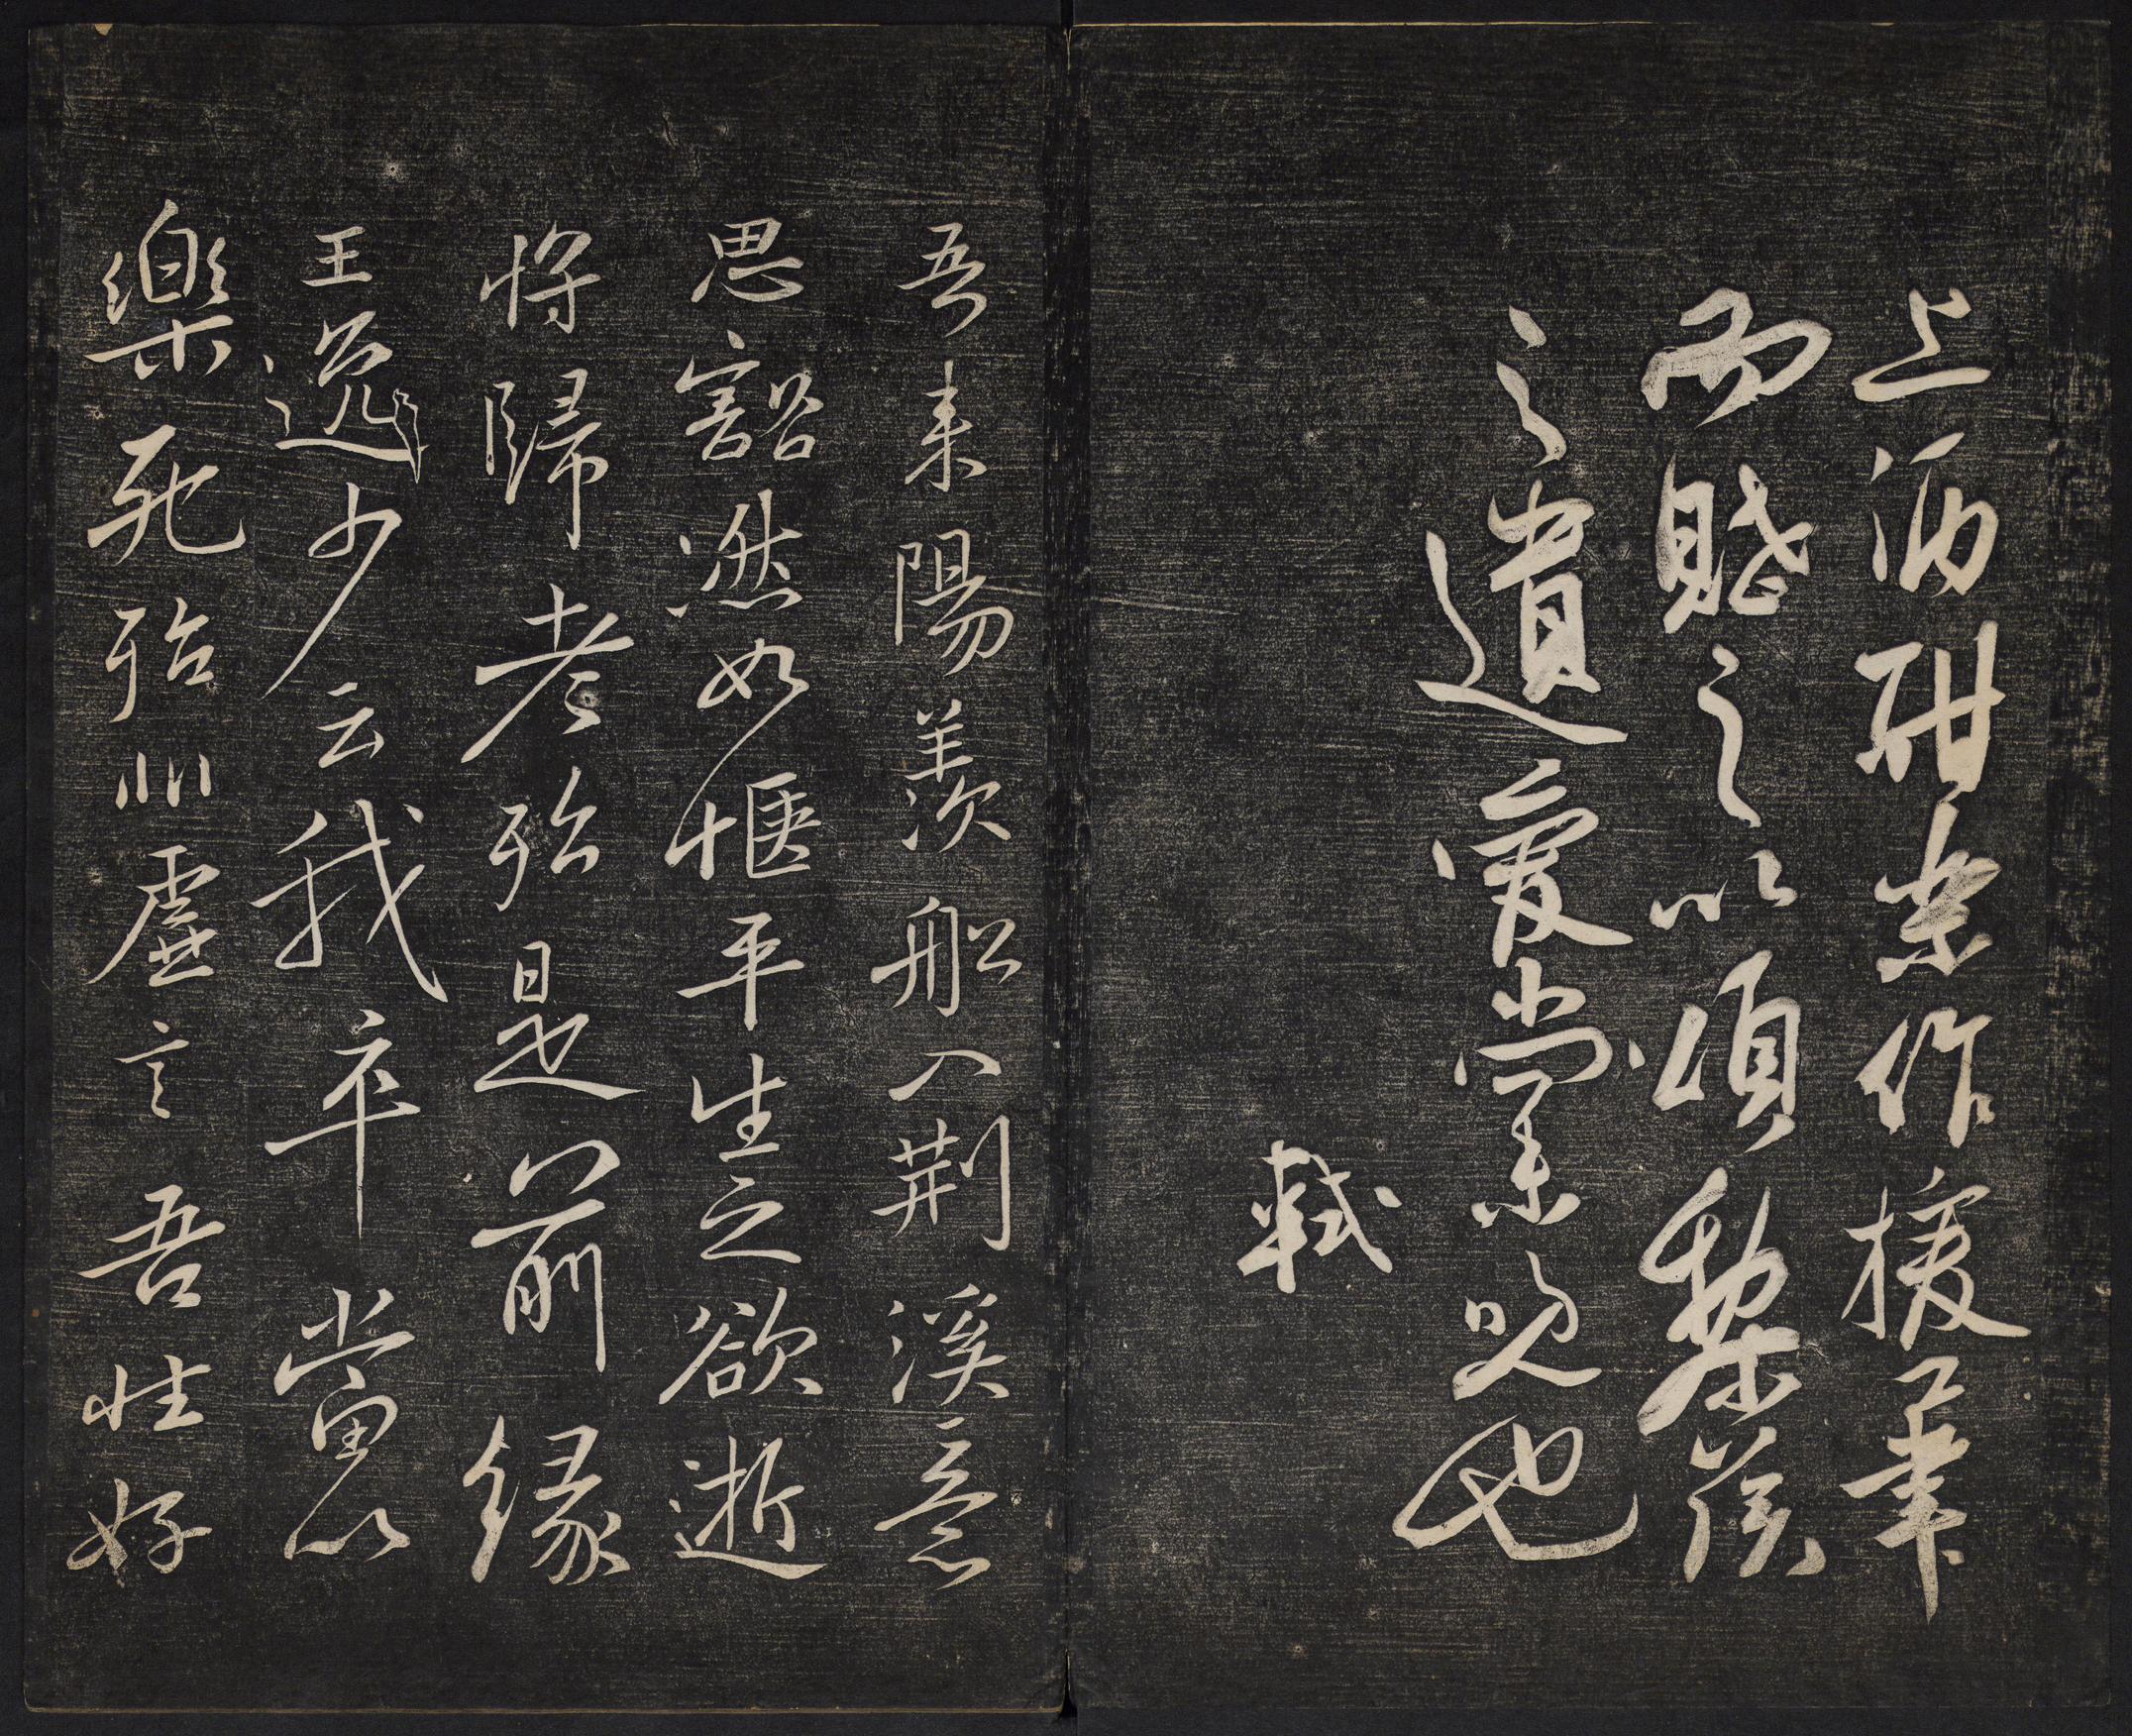 上酒酣索作援筆
而賦之以頌黎侯
之遺愛尚未晚也
軾
吾來陽羨船入荊溪意
思豁然如愜平生之欲逝
將歸老殆是前緣
王逸少云我卒當以
樂死殆非虛言吾性好